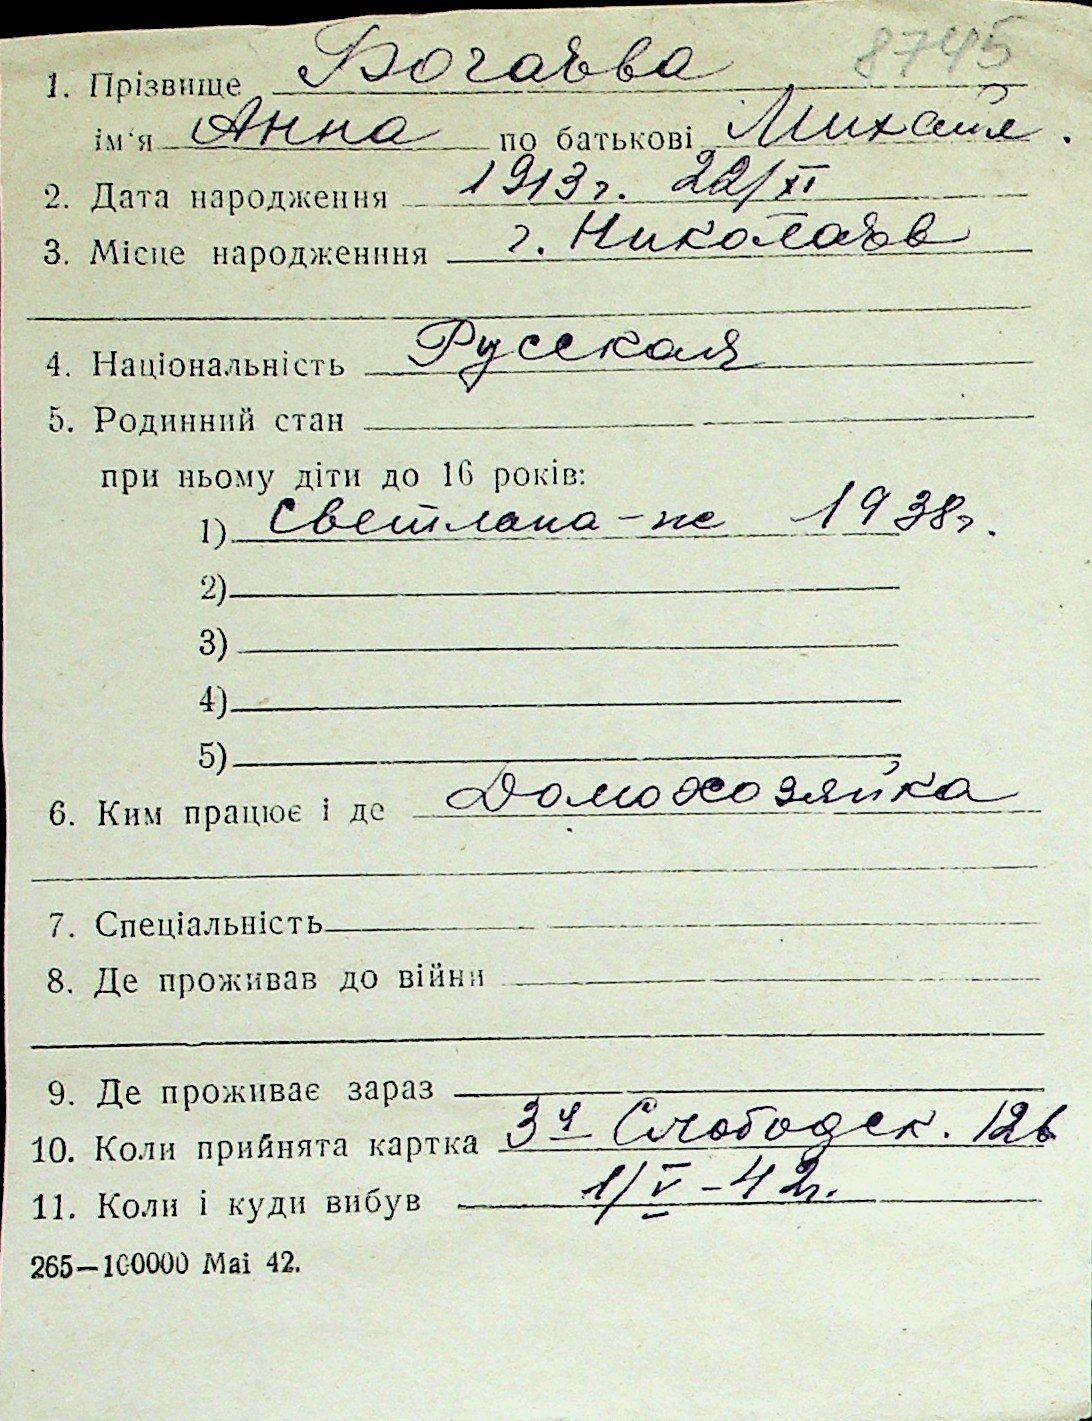 8745
1. Прізвище Богаєва
ім'я Анна по батькові Михайл.
2. Дата народження 1913 г. 22/XI
3. Місце народженння г. Николаев
4. Національність Русская
5. Родинний стан
при ньому діти до 16 років:
1) Светлана - 1938 г.
2)
3)
4)
5)
6. Ким працює і де Домохозяйка
7. Спеціальність
8. Де проживав до війни
9. Де проживає зараз
10. Коли прийнята картка 3я Слободск. 12в
11. Коли і куди вибув 1/V - 42 г.
265—100000 Mai 42.